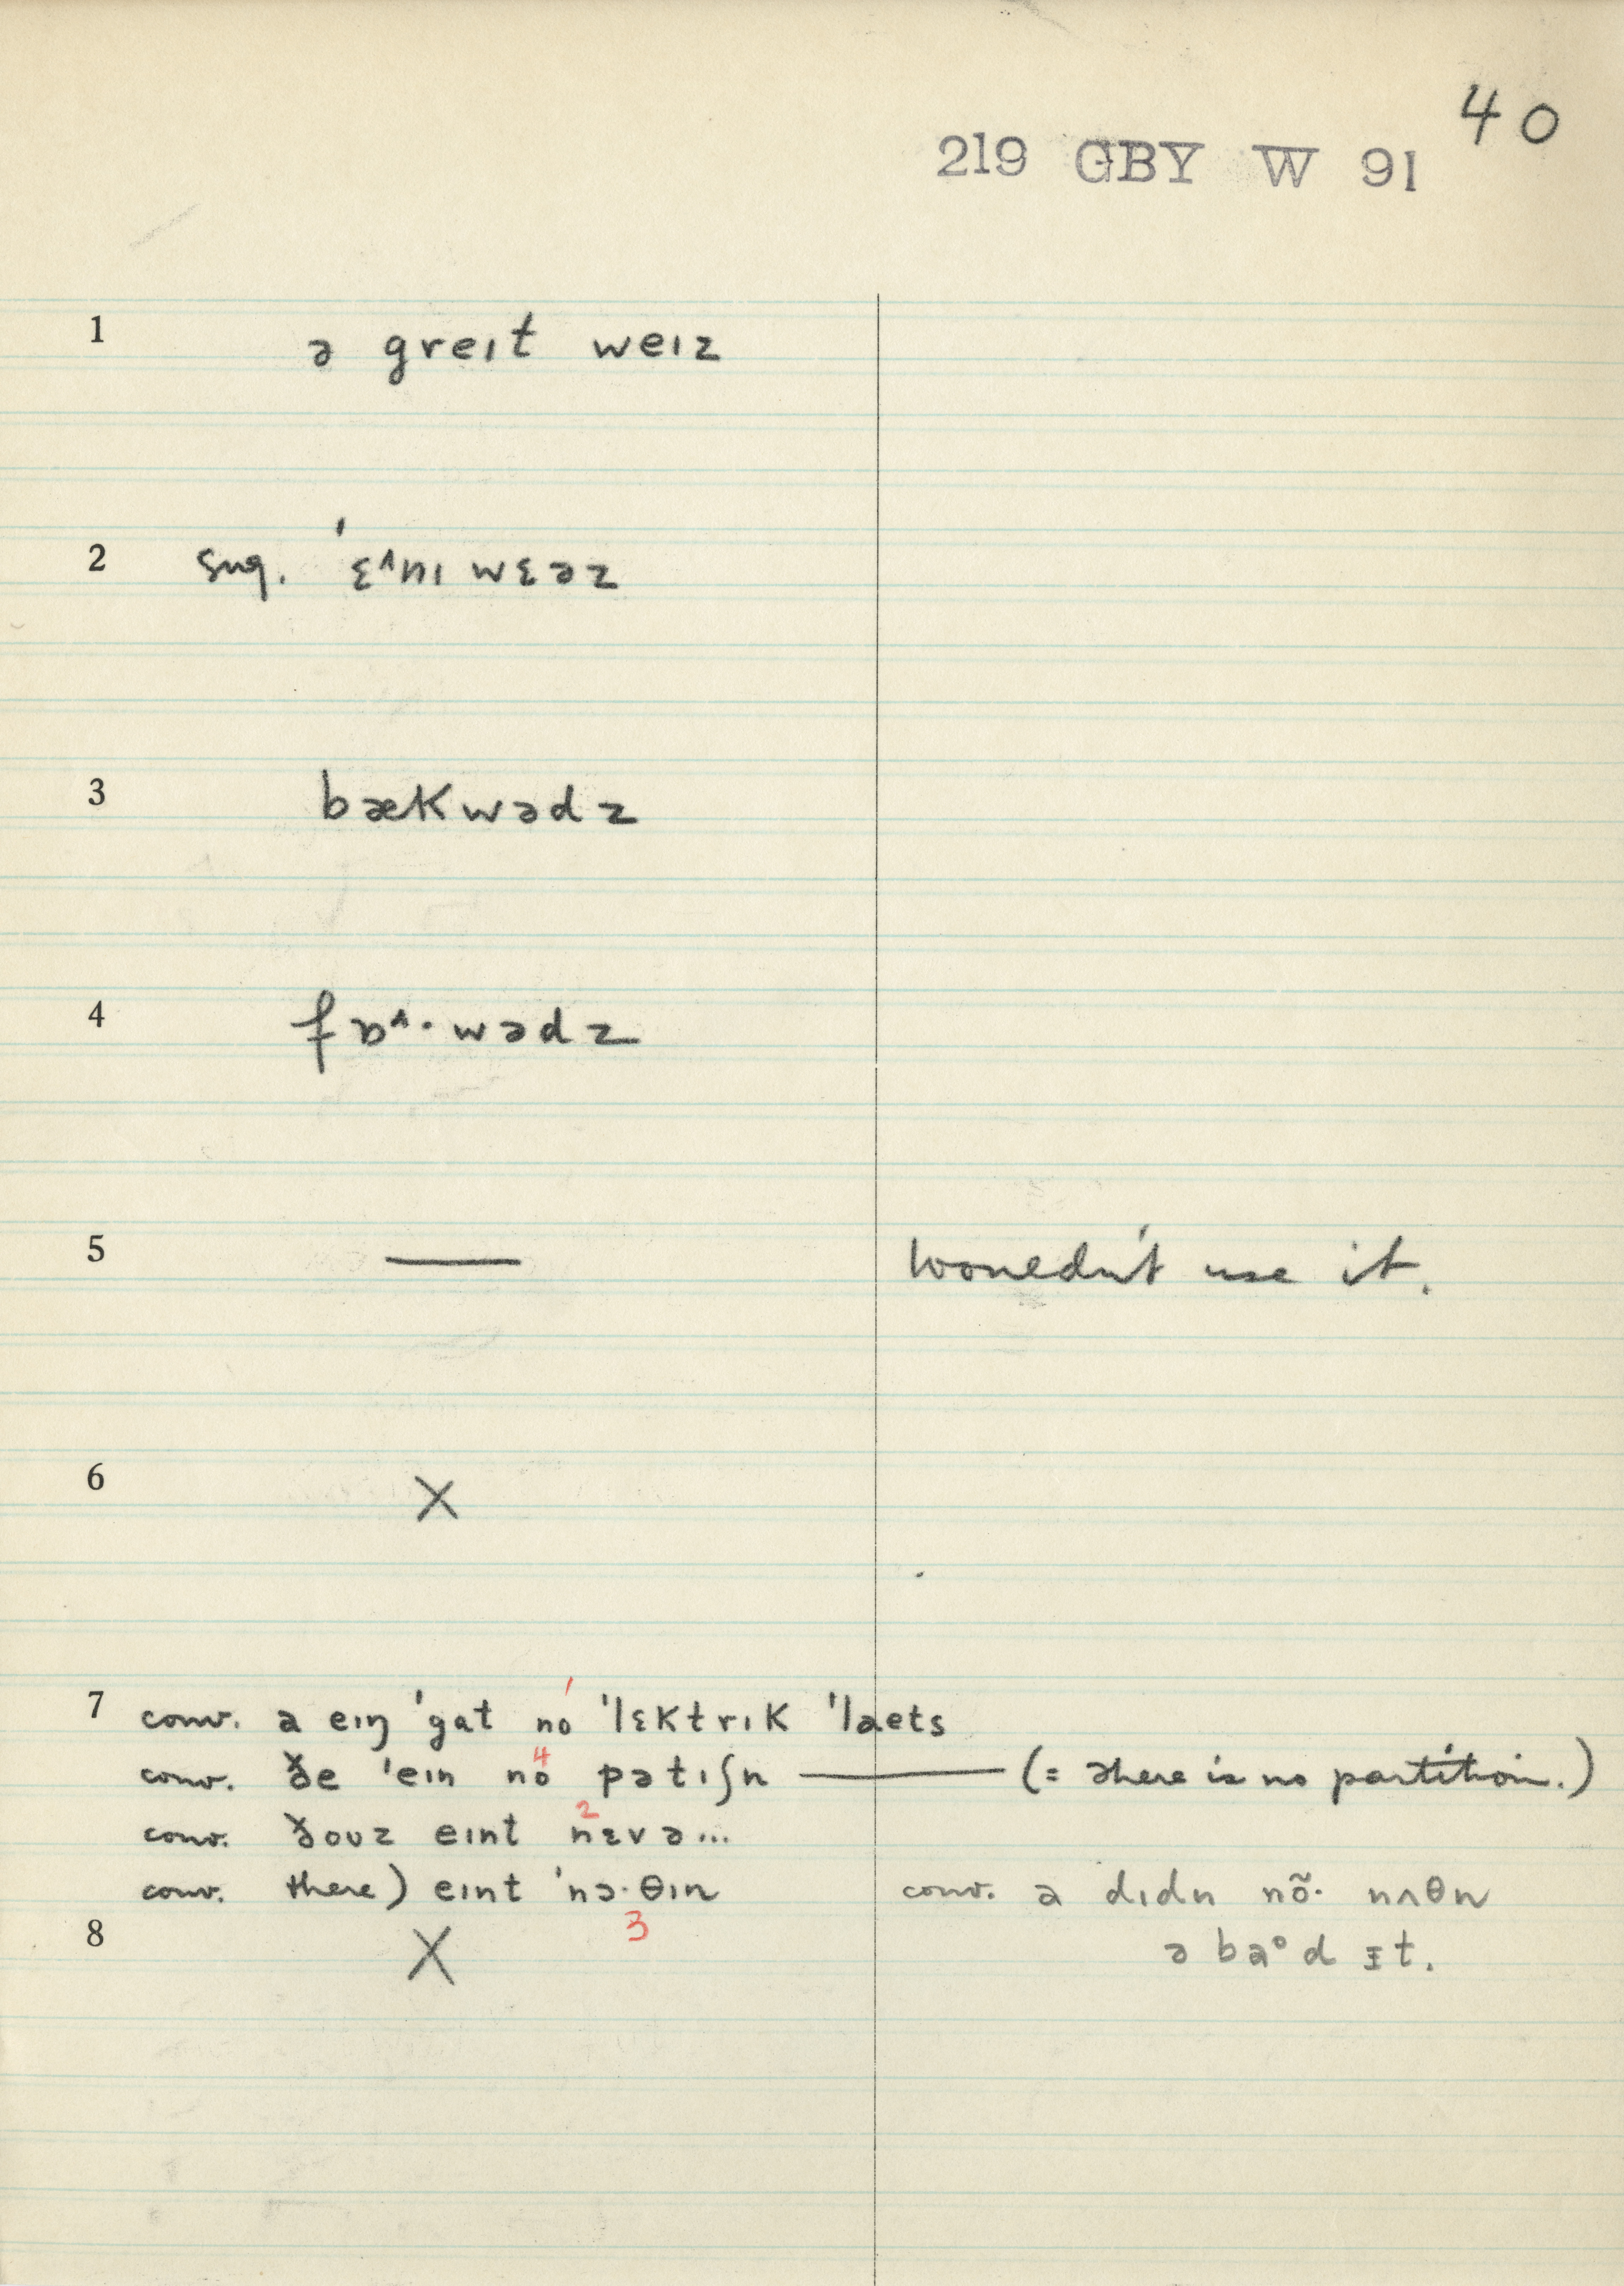 40
219 GBY W 91
1 ə greɪt weɪz
2 sug. ˈɛ^nɪ wɛəz
3 bækwədz
4 fɒ^·wədz
5 — wouldn't use it.
6 X
7 conv. a eɪŋ ˈgat no 1 ˈlɛktrɪk ˈlaets
conv. ðe ˈeɪn no 4 pətɪʃn — (= there is no partition.)
conv. ðouz eɪnt nɛvə... 2
conv. there) eɪnt ˈnɔ·θɪn 3 conv. a dɪdn nõ· nʌθn
8 X ə baᵊd ɪt.